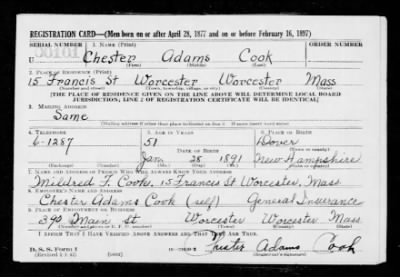 REGISTRATION CARD—(Men born on or after April 28, 1877 and on or before February 16, 1897)
SERIAL NUMBER 1. NAME (Print)
U Chester Adams Cook
(First) (Middle) (Last)
2. PLACE OF RESIDENCE (Print)
15 Francis St Worcester Worcester Mass
(Number and street) (Town, township, village, or city) (County) (State)
[THE PLACE OF RESIDENCE GIVEN ON THE LINE ABOVE WILL DETERMINE LOCAL BOARD
JURISDICTION; LINE 2 OF REGISTRATION CERTIFICATE WILL BE IDENTICAL]
3. MAILING ADDRESS
Same
[Mailing address if other than place indicated on line 2. If same insert word same]
4. TELEPHONE 5. AGE IN YEARS 6. PLACE OF BIRTH
6-1287 51 Dover
DATE OF BIRTH (Town or county)
Jan 28 1891 New Hampshire
(Exchange) (Number) (Mo.) (Day) (Yr.) (State or country)
7. NAME AND ADDRESS OF PERSON WHO WILL ALWAYS KNOW YOUR ADDRESS
Mildred F. Cook, 15 Francis St Worcester, Mass
8. EMPLOYER'S NAME AND ADDRESS
Chester Adams Cook (self) General Insurance
9. PLACE OF EMPLOYMENT OR BUSINESS
390 Main St Worcester Worcester Mass
(Number and street or R. F. D. number) (Town) (County) (State)
I AFFIRM THAT I HAVE VERIFIED ABOVE ANSWERS AND THAT THEY ARE TRUE.
D. S. S. Form 1 Chester Adams Cook
(Revised 4-1-42) (over)